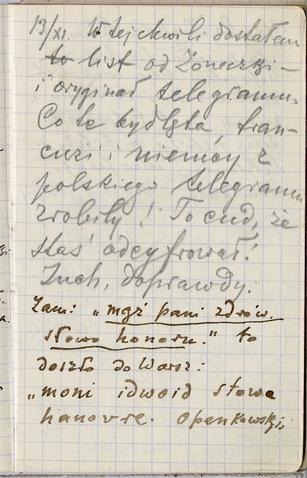 13/XI. W tej chwili dostałem
to list od Żoneczki –
i oryginał telegramu.
Co te bydlęta, fran-
cuzi i niemcy z
polskiego telegramu
zrobiły! To cud, że
Staś odcyfrował!
Zuch, doprawdy.
Zam: „mgr pani zdrów.
słowo honoru." to
doszło do Warsz:
„moni idwoid stowa
hanovre. Openkowski„